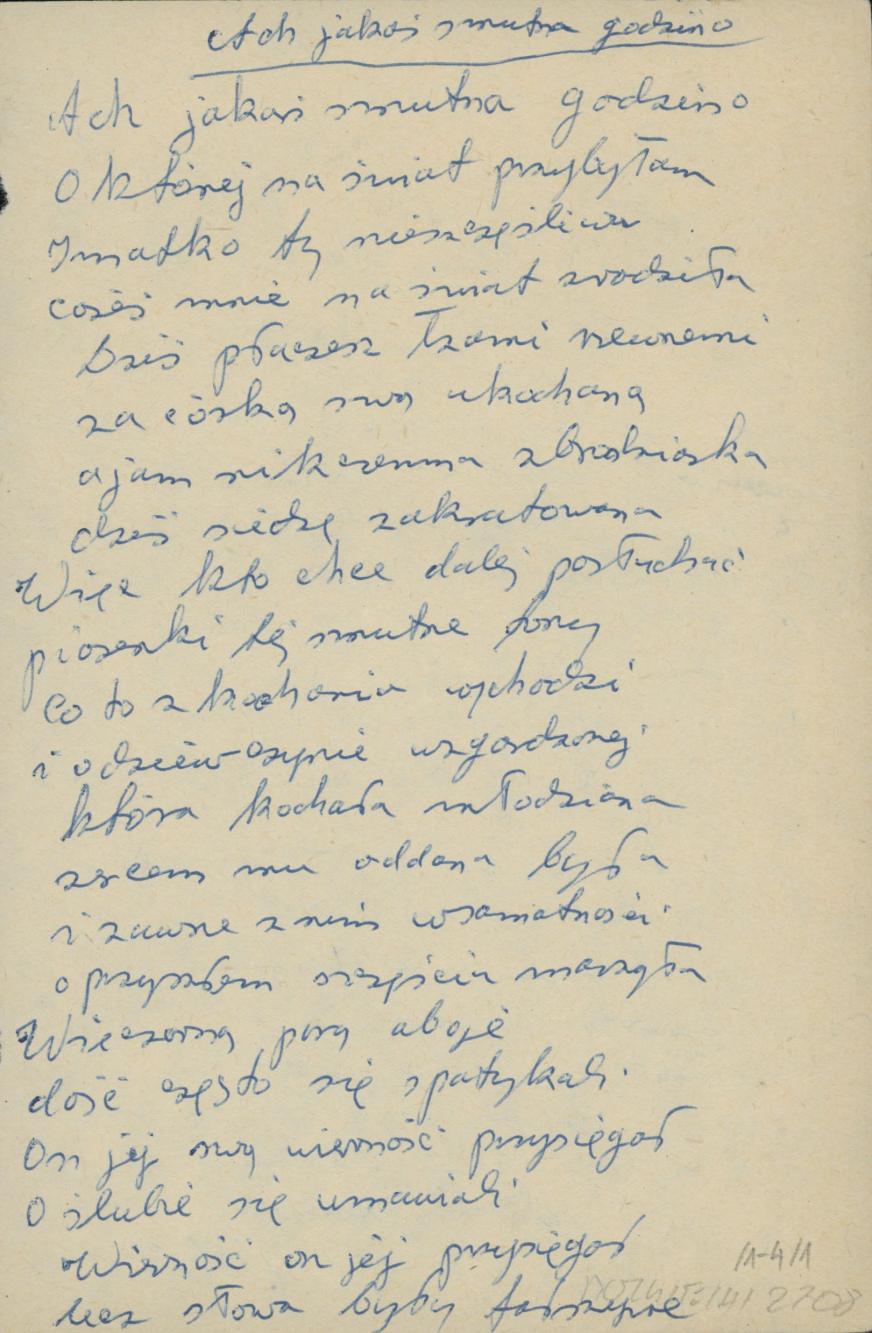 Ach jakaś smutna godzino
Ach jakaś smutna godzino
O której na świat przybyłam
I matko ty nieszczęśliwa
cożeś mnie na świat zrodziła
Dziś płaczesz łzami rzewnemi
za córką swą ukochaną
a jam nikczemna zbrodniarka
dziś siedzę zakratowana
Więc kto chce dalej posłuchać
piosenki tej smutne tony
Co to z kochania wychodzi
i o dziewczynie wzgardzonej
która kochała młodziana
sercem mu oddana była
i zawsze z nim w samotności
o przyszłem szczęściu marzyła
Wieczorną porą oboje
dość często się spatykali.
On jej swą wierność przysięgał
O ślubie się umawiali
Wierność on jej przysięgał
lecz słowa były fałszywe
/1-4/1
2708